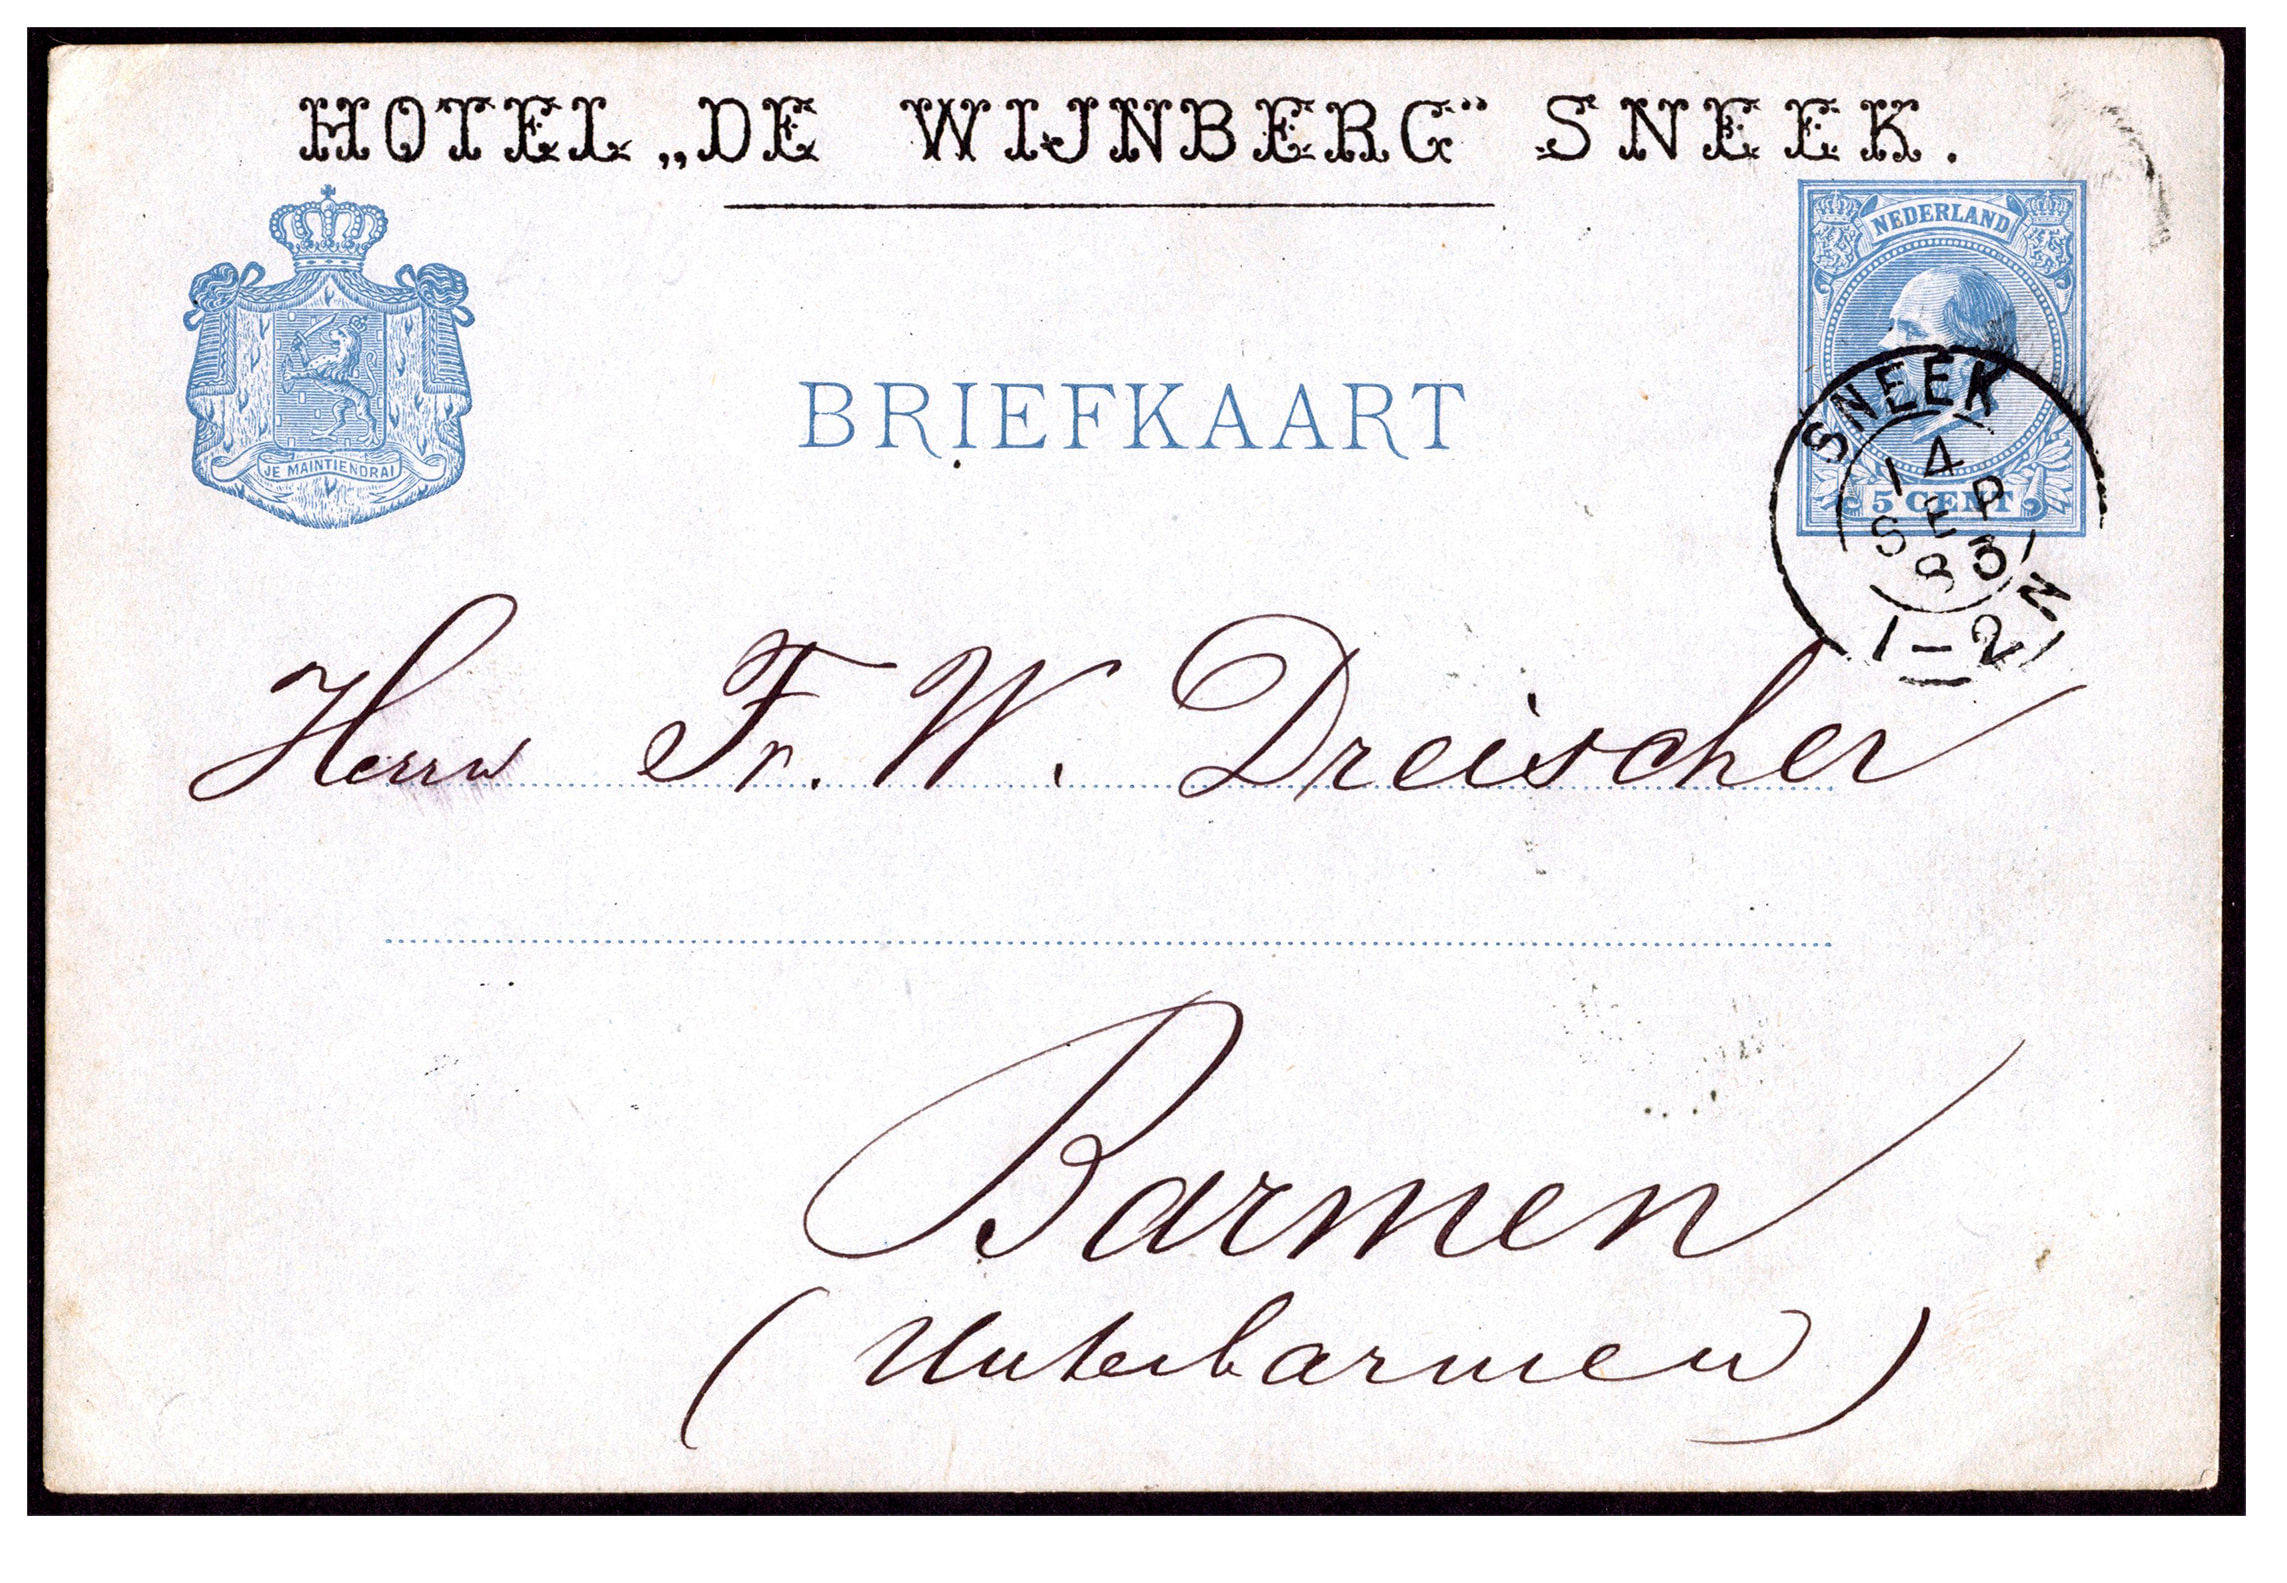 HOTEL „DE WIJNBERG” SNEEK.
NEDERLAND
JE MAINTIENDRAI
BRIEFKAART
5 CENT
SNEEK
14
SEP
83
1-2 N
Herrn Fr. W. Dreischer
Barmen
(Unterbarmen)